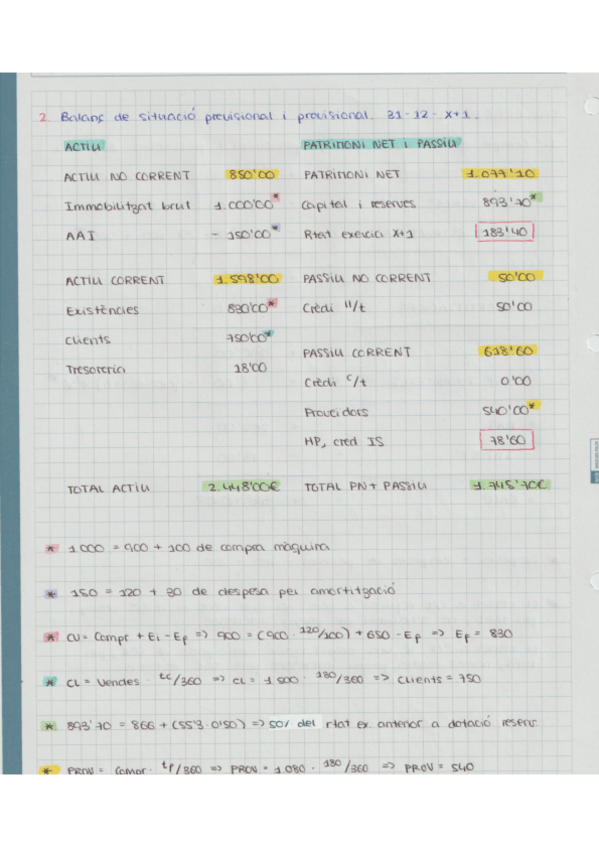 2. Balanç de situació previsional i provisional. 31-12-X+1.
ACTIU PATRIMONI NET i PASSIU
ACTIU NO CORRENT 850'00 PATRIMONI NET 1.077'10
Immobilitzat brut 1.000'00* Capital i reserves 893'70*
AAI - 150'00* Rtat exercici X+1 183'40
ACTIU CORRENT 1.598'00 PASSIU NO CORRENT 50'00
Existències 830'00* Crèdi ll/t 50'00
Clients 750'00*
PASSIU CORRENT 618'60
Tresoreria 18'00
Crèdi c/t 0'00
Proveïdors 540'00*
HP, cred IS 78'60
TOTAL ACTIU 2.448'00€ TOTAL PN + PASSIU 1.745'70€
* 1.000 = 900 + 100 de compra màquina
* 150 = 120 + 30 de despesa per amortització
* CV = Compr + Ei - Ef => 900 = (900 · 120/100) + 650 - Ef => Ef = 830
* CL = Vendes · tc/360 => CL = 1.500 · 180/360 => Clients = 750
* 893'70 = 866 + (55'3 · 0'50) => 50% del rtat ex. anterior a dotació reserv.
* PROV = Compr · tp/360 => PROV = 1.080 · 180/360 => PROV = 540